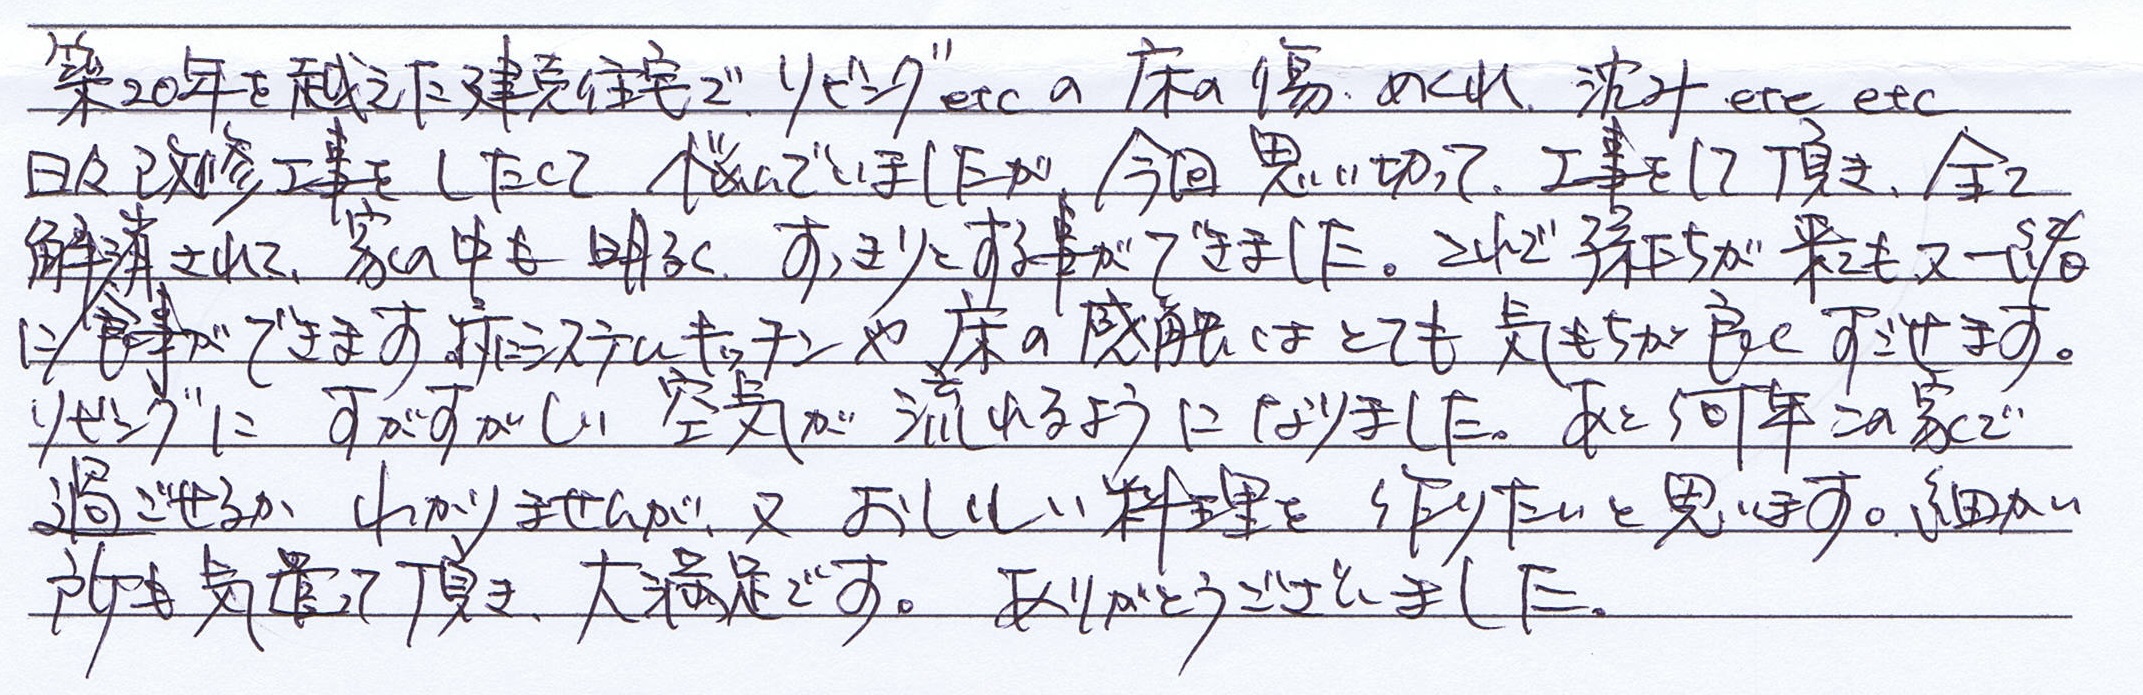 築20年を越えた建売住宅で、リビングetcの床の傷、めくれ、沈み etc etc
日々改修工事をしたくて悩んでいましたが、今回思い切って、工事をして頂き、全て
解消されて、家の中も明るく、すっきりとする事ができました。これで孫たちが来ても又一緒
に食事ができます。特にシステムキッチンや床の感触はとても気もちが良くすごせます。
リビングにすがすがしい空気が流れるようになりました。あと何年この家で
過ごせるかわかりませんが、又おいしい料理を作りたいと思います。細かい
所も気遣って頂き、大満足です。ありがとうございました。